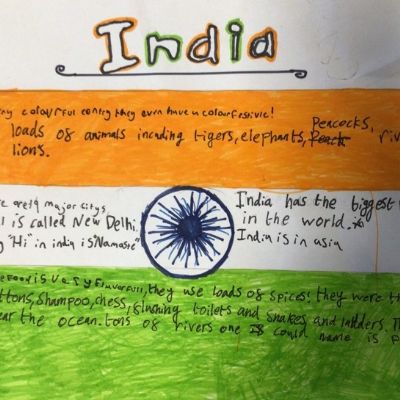 India
colourful contry they even have a colour festivle!
loads of animals incuding tigers, elephants, Peacocks,
lions.
major citys
is called New Delhi.
"Hi" in india is "Namaste"
India has the biggest
in the world.
India is in asia
Food is Very Flavorfull, they use loads of spices! they were the
shampoo, chess, flushing toilets and snakes and ladders.
near the ocean. tons of rivers one is could name is